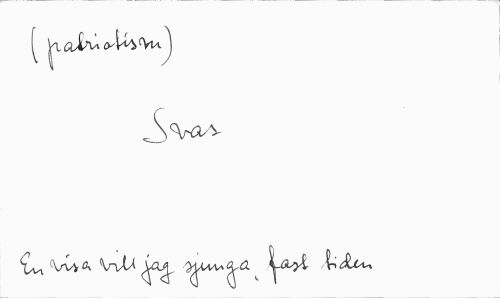 (patriotism)
Svas
En visa vill jag sjunga, fast tiden